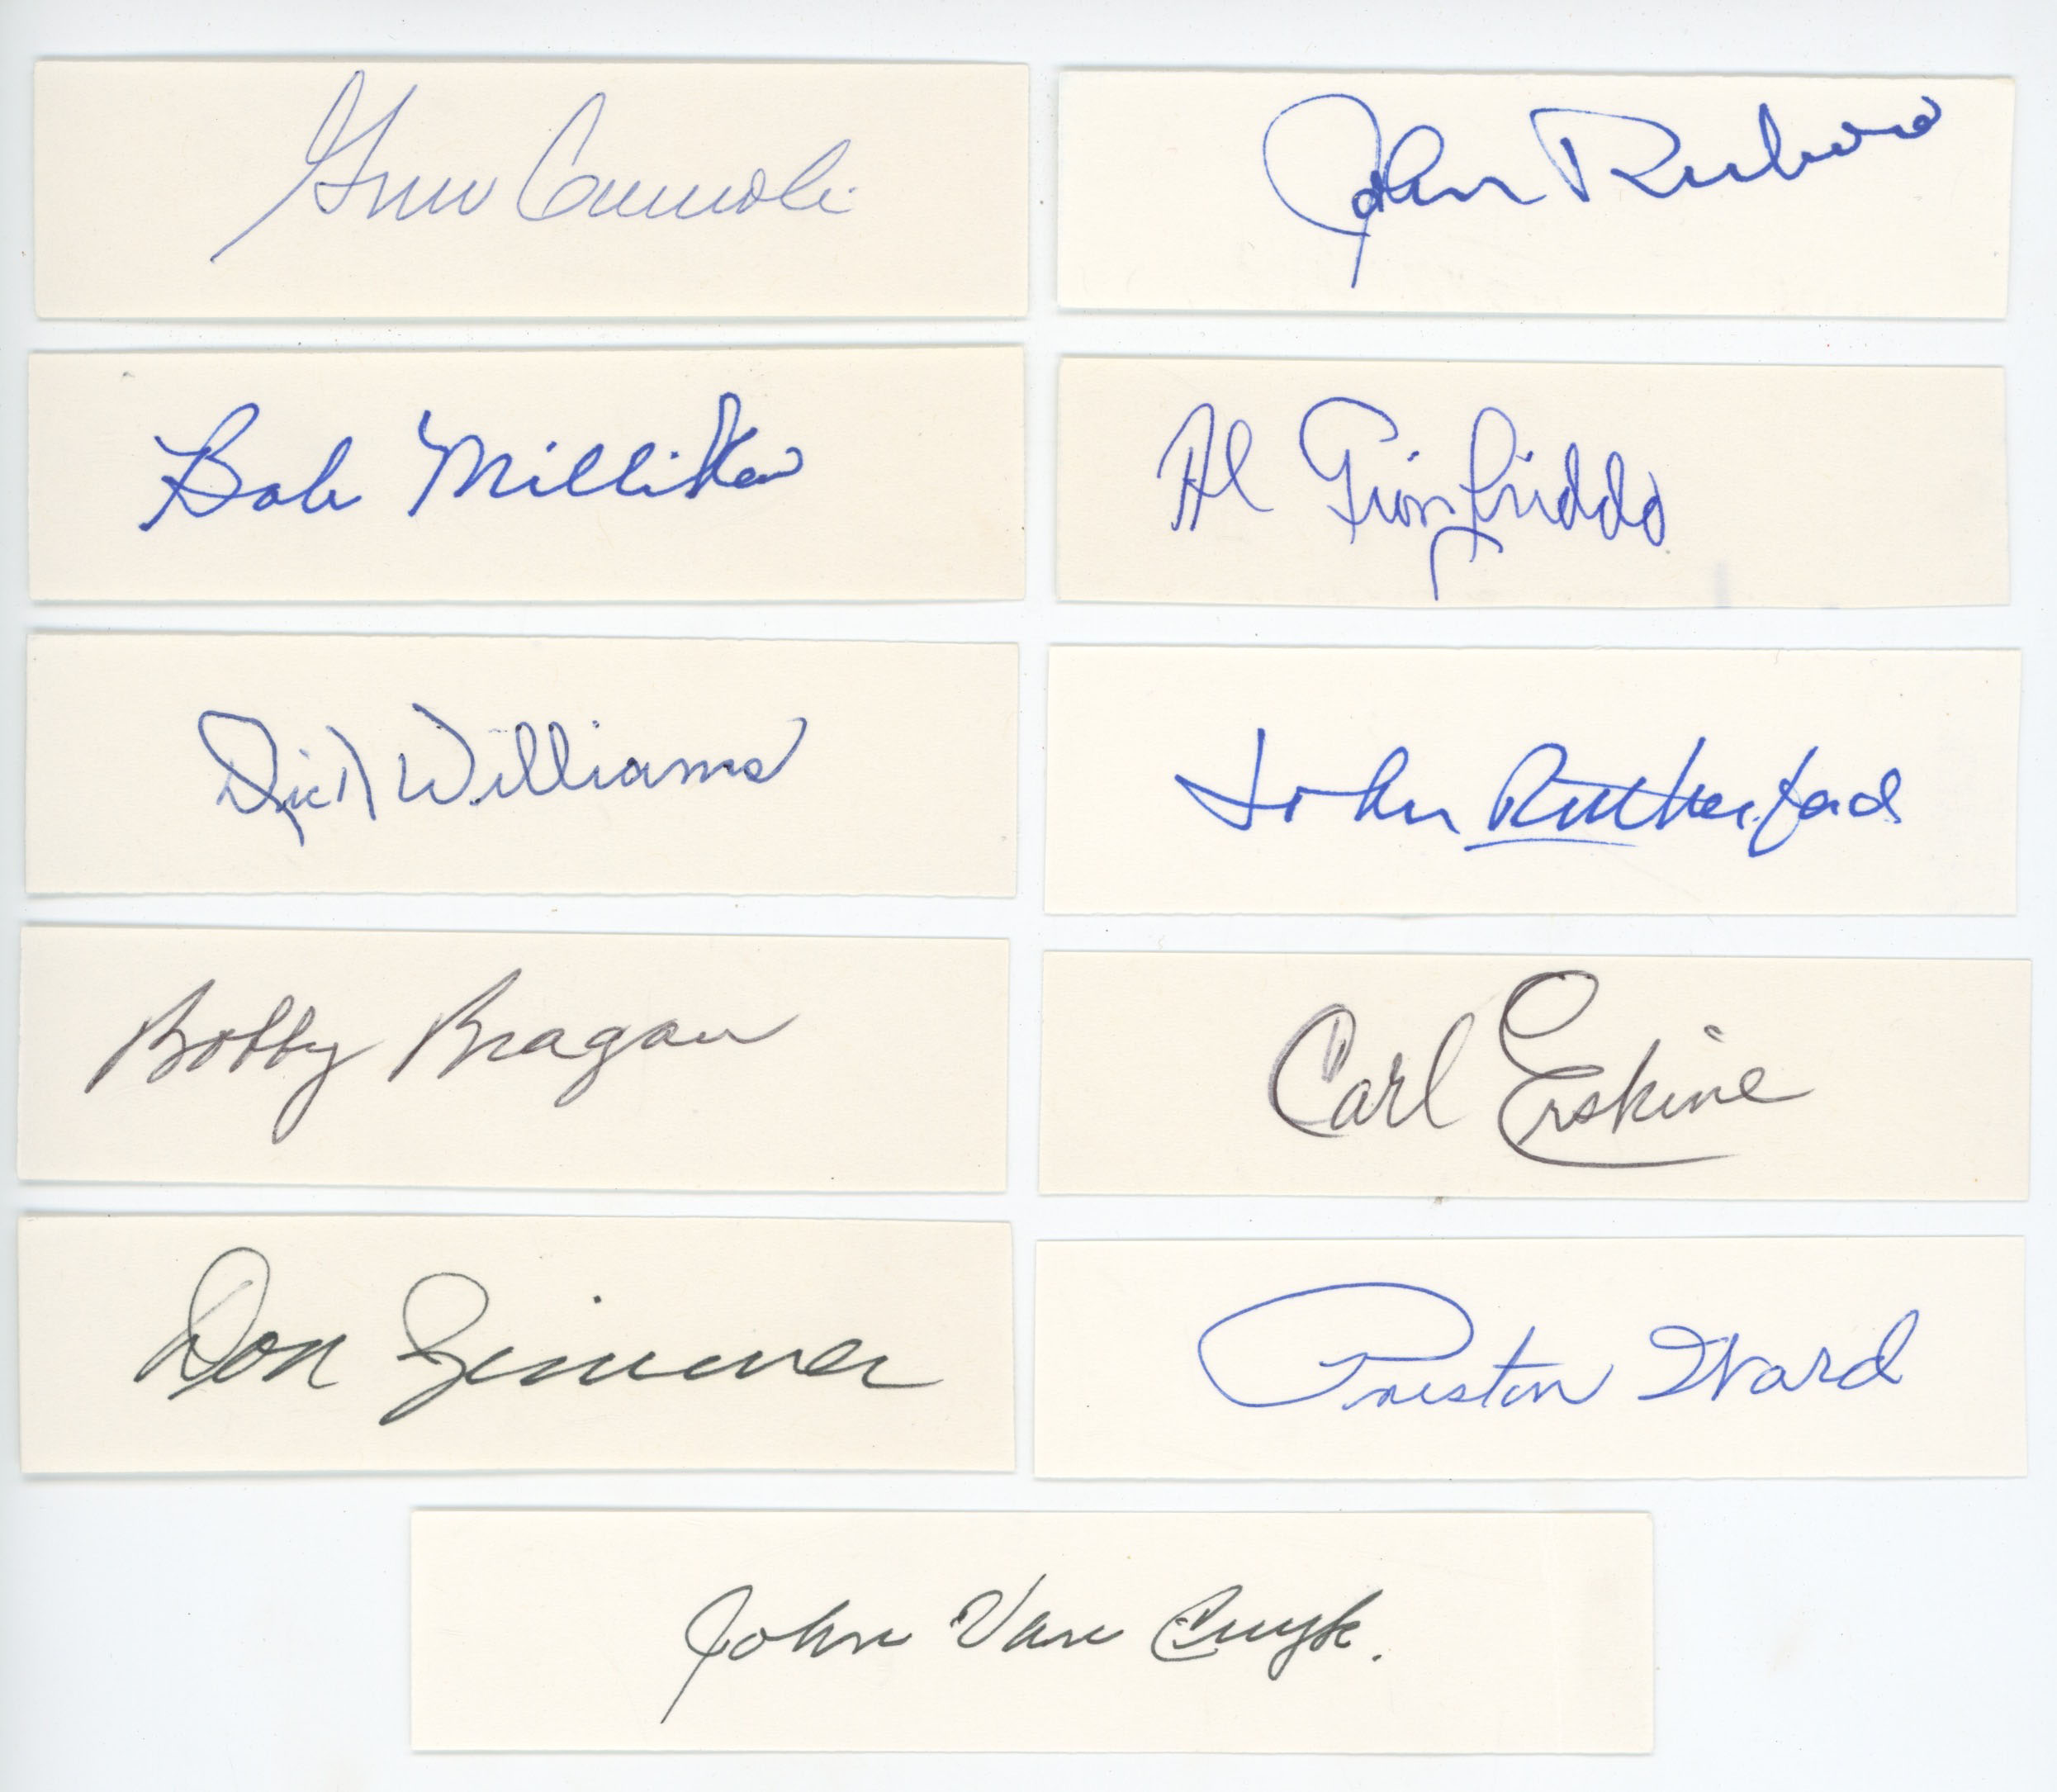 Gino Cimoli
John Roseboro
Bob Milliken
Al Gionfriddo
Dick Williams
John Rutherford
Bobby Bragan
Carl Erskine
Don Zimmer
Preston Ward
John Van Cuyk.